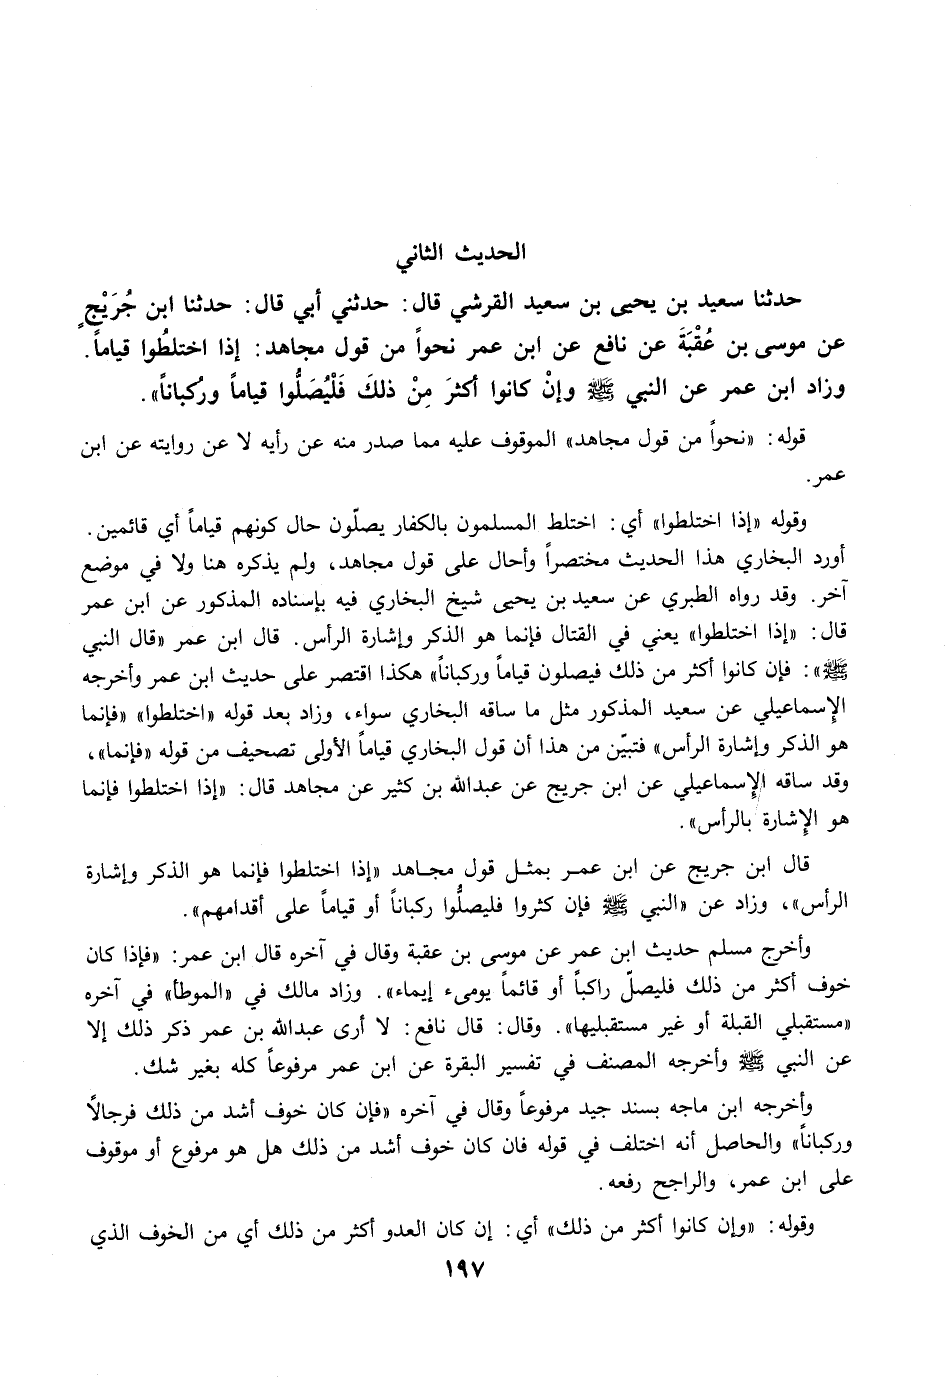 الحديث الثاني
حدثنا سعيد بن يحيى بن سعيد القرشي قال: حدثني أبي قال: حدثنا ابن جُرَيْجٍ
عن موسى بن عُقْبَةَ عن نافع عن ابن عمر نحواً من قول مجاهد: إذا اختلطُوا قياماً.
وزاد ابن عمر عن النبي ﷺ وإنْ كانوا أكثرَ مِنْ ذلكَ فَلْيُصَلُّوا قياماً ورُكباناً».
قوله: «نحواً من قول مجاهد» الموقوف عليه مما صدر منه عن رأيه لا عن روايته عن ابن
عمر.
وقوله «إذا اختلطوا» أي: اختلط المسلمون بالكفار يصلّون حال كونهم قياماً أي قائمين.
أورد البخاري هذا الحديث مختصراً وأحال على قول مجاهد، ولم يذكره هنا ولا في موضع
آخر. وقد رواه الطبري عن سعيد بن يحيى شيخ البخاري فيه بإسناده المذكور عن ابن عمر
قال: «إذا اختلطوا» يعني في القتال فإنما هو الذكر وإشارة الرأس. قال ابن عمر «قال النبي
ﷺ»: فإن كانوا أكثر من ذلك فيصلون قياماً وركباناً» هكذا اقتصر على حديث ابن عمر وأخرجه
الإسماعيلي عن سعيد المذكور مثل ما ساقه البخاري سواء، وزاد بعد قوله «اختلطوا» «فإنما
هو الذكر وإشارة الرأس» فتبيّن من هذا أن قول البخاري قياماً الأولى تصحيف من قوله «فإنما»،
وقد ساقه الإسماعيلي عن ابن جريج عن عبدالله بن كثير عن مجاهد قال: «إذا اختلطوا فإنما
هو الإشارة بالرأس».
قال ابن جريج عن ابن عمر بمثل قول مجاهد «إذا اختلطوا فإنما هو الذكر وإشارة
الرأس»، وزاد عن «النبي ﷺ فإن كثروا فليصلُّوا ركباناً أو قياماً على أقدامهم».
وأخرج مسلم حديث ابن عمر عن موسى بن عقبة وقال في آخره قال ابن عمر: «فإذا كان
خوف أكثر من ذلك فليصلّ راكباً أو قائماً يومىء إيماء». وزاد مالك في «الموطأ» في آخره
«مستقبلي القبلة أو غير مستقبليها». وقال: قال نافع: لا أرى عبدالله بن عمر ذكر ذلك إلا
عن النبي ﷺ وأخرجه المصنف في تفسير البقرة عن ابن عمر مرفوعاً كله بغير شك.
وأخرجه ابن ماجه بسند جيد مرفوعاً وقال في آخره «فإن كان خوف أشد من ذلك فرجالاً
وركباناً» والحاصل أنه اختلف في قوله فان كان خوف أشد من ذلك هل هو مرفوع أو موقوف
على ابن عمر، والراجح رفعه.
وقوله: «وإن كانوا أكثر من ذلك» أي: إن كان العدو أكثر من ذلك أي من الخوف الذي
١٩٧